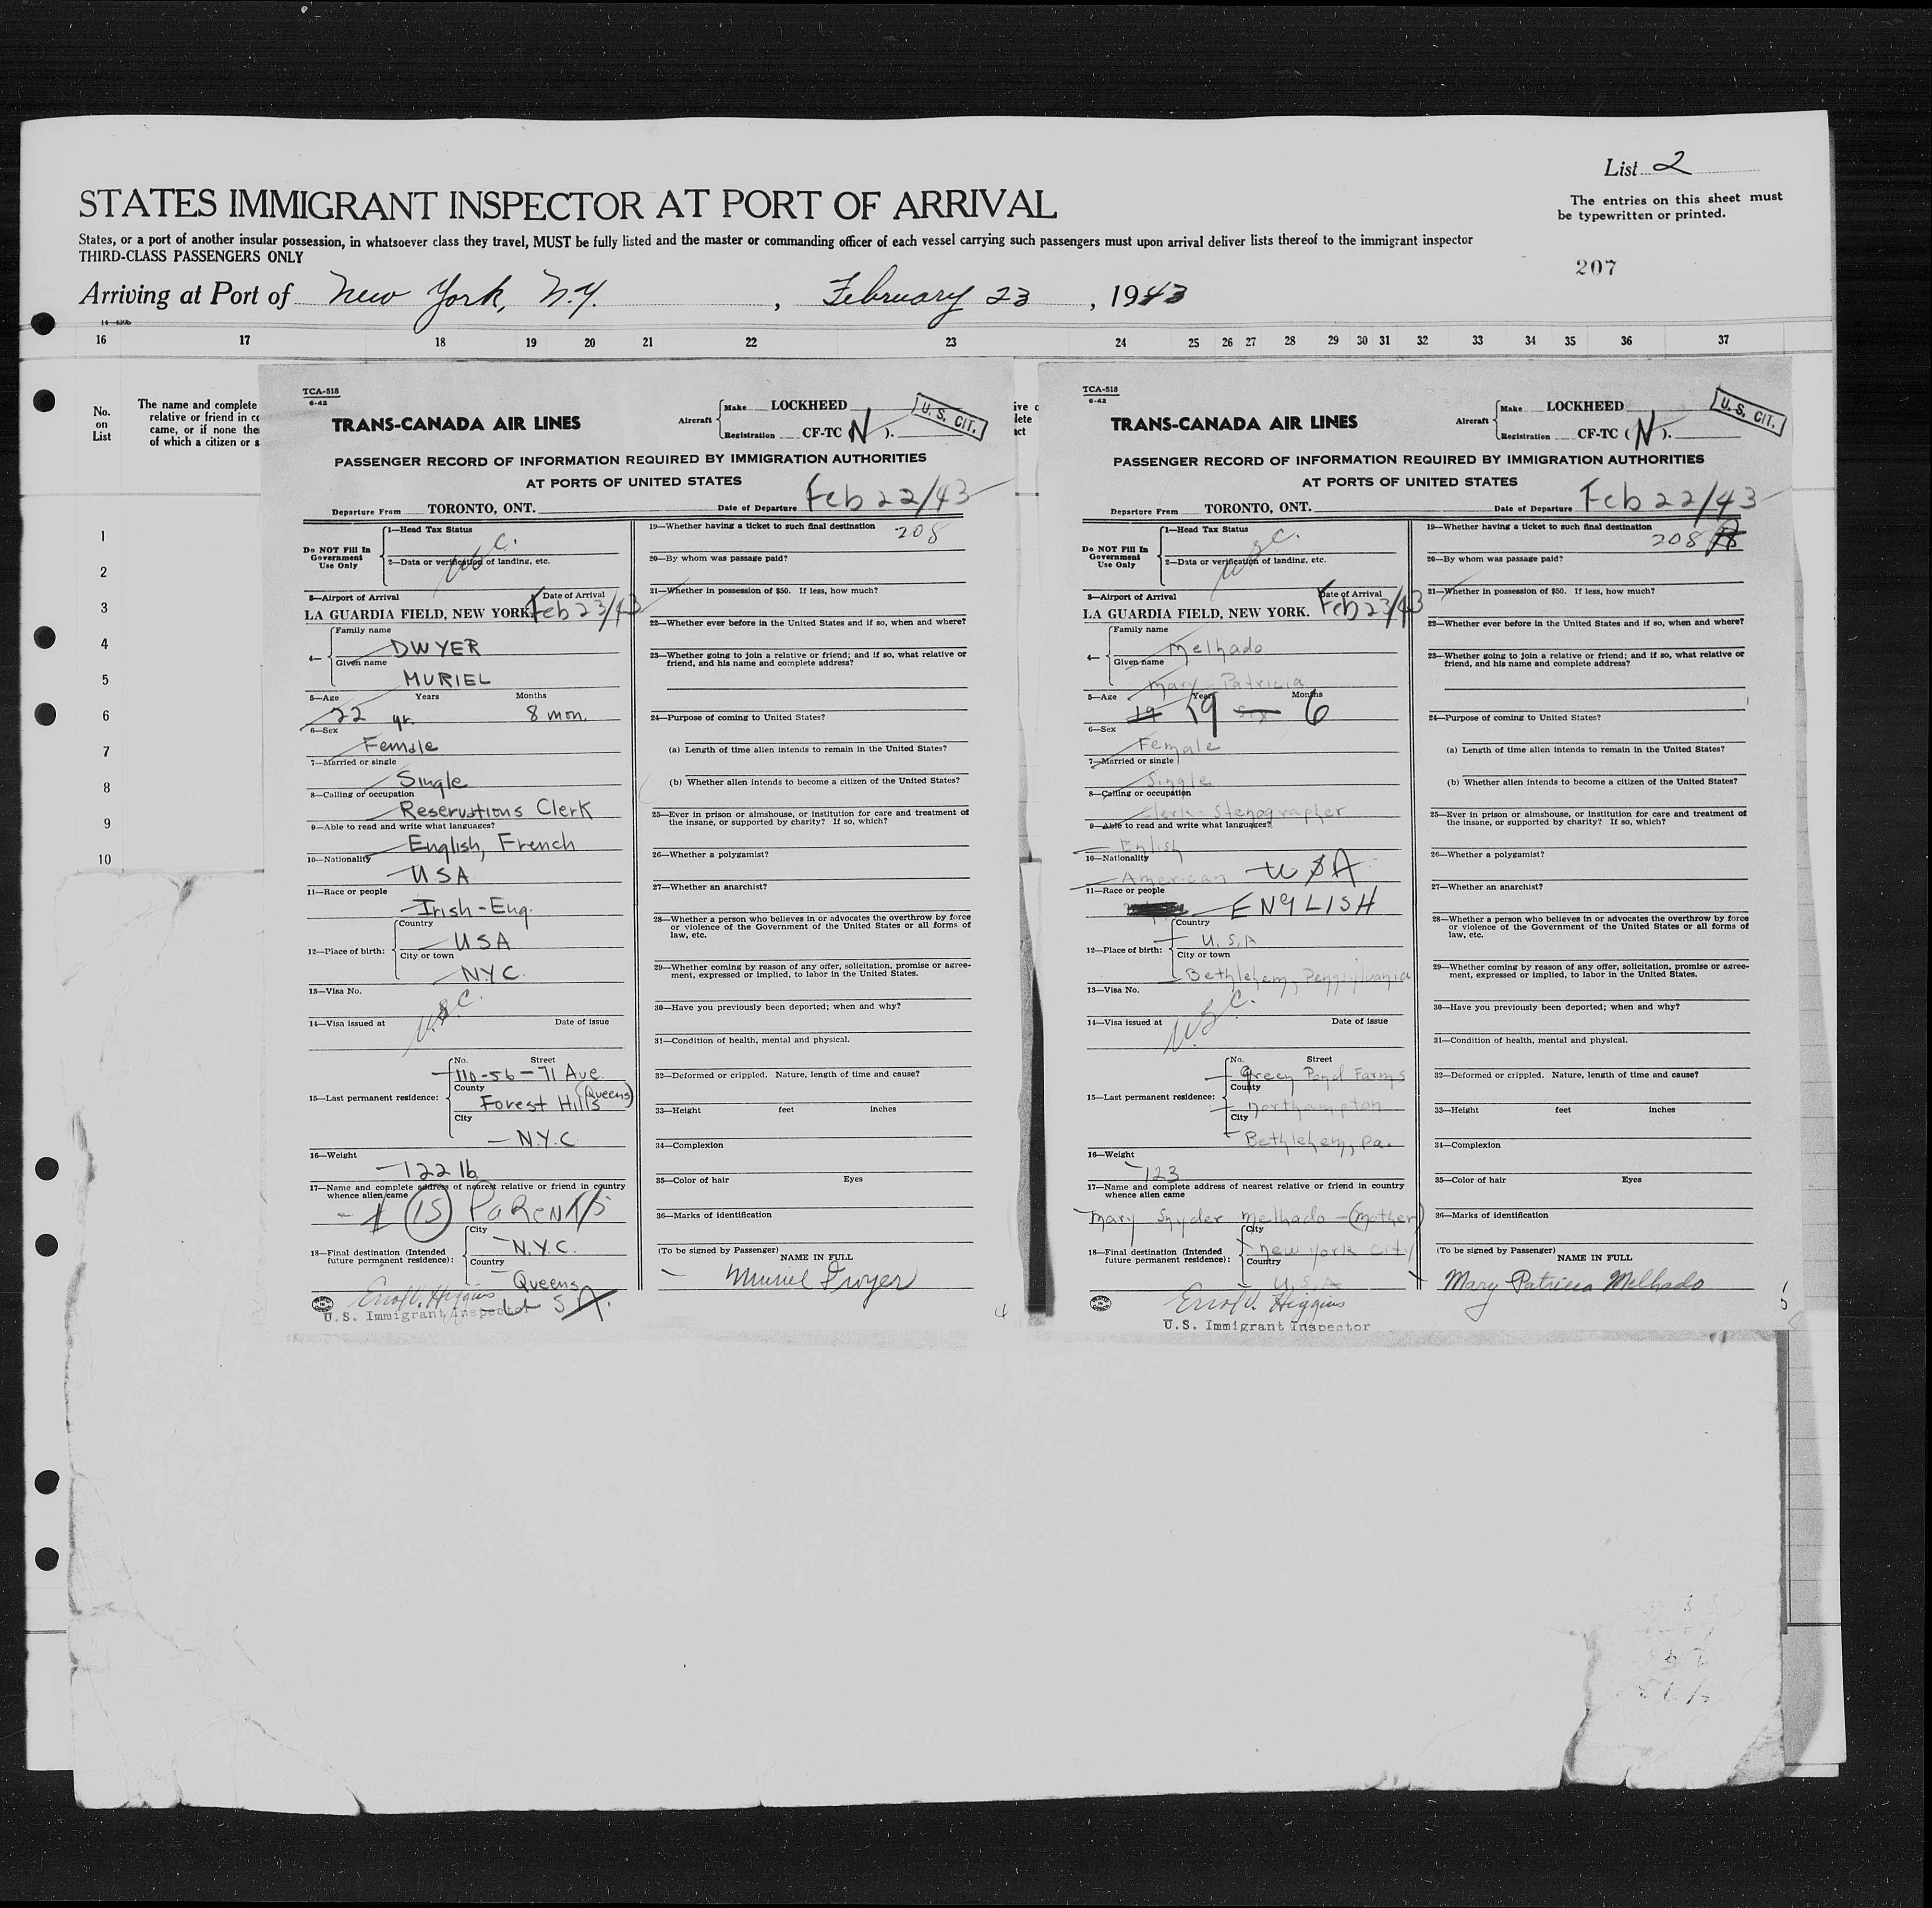 List 2
STATES IMMIGRANT INSPECTOR AT PORT OF ARRIVAL
The entries on this sheet must
be typewritten or printed.
States, or a port of another insular possession, in whatsoever class they travel, MUST be fully listed and the master or commanding officer of each vessel carrying such passengers must upon arrival deliver lists thereof to the immigrant inspector
THIRD-CLASS PASSENGERS ONLY
207
Arriving at Port of New York, N.Y., February 23, 1943
16 17 18 19 20 21 22 23 24 25 26 27 28 29 30 31 32 33 34 35 36 37
No.
on
List
The name and complete
relative or friend in co
came, or if none the
of which a citizen or s
1
2
3
4
5
6
7
8
9
10
TCA-518
6-42
TRANS-CANADA AIR LINES
Aircraft
Make LOCKHEED
Registration CF-TC (N).
U. S. CIT.
PASSENGER RECORD OF INFORMATION REQUIRED BY IMMIGRATION AUTHORITIES
AT PORTS OF UNITED STATES
Departure From TORONTO, ONT. Date of Departure Feb 22/43
Do NOT Fill In
Government
Use Only
1—Head Tax Status
USC.
2—Data or verification of landing, etc.
3—Airport of Arrival Date of Arrival
LA GUARDIA FIELD, NEW YORK. Feb 23/43
4—
Family name
DWYER
Given name
MURIEL
5—Age Years Months
22 yr. 8 mon.
6—Sex
Female
7—Married or single
Single
8—Calling or occupation
Reservations Clerk
9—Able to read and write what languages?
English, French
10—Nationality
USA
11—Race or people
Irish-Eng.
12—Place of birth:
Country
USA
City or town
N.Y.C.
13—Visa No.
U.S.C.
14—Visa issued at Date of issue
15—Last permanent residence:
No. Street
110-56-71 Ave.
County
Forest Hills (Queens)
City
N.Y.C.
16—Weight
122 lb
17—Name and complete address of nearest relative or friend in country
whence alien came
(15) PARENTS
18—Final destination (Intended
future permanent residence):
City
N.Y.C.
Country
Queens
Errol V. Higgins
U.S. Immigrant Inspector
19—Whether having a ticket to such final destination
208
20—By whom was passage paid?
21—Whether in possession of $50. If less, how much?
22—Whether ever before in the United States and if so, when and where?
23—Whether going to join a relative or friend; and if so, what relative or
friend, and his name and complete address?
24—Purpose of coming to United States?
(a) Length of time alien intends to remain in the United States?
(b) Whether alien intends to become a citizen of the United States?
25—Ever in prison or almshouse, or institution for care and treatment of
the insane, or supported by charity? If so, which?
26—Whether a polygamist?
27—Whether an anarchist?
28—Whether a person who believes in or advocates the overthrow by force
or violence of the Government of the United States or all forms of
law, etc.
29—Whether coming by reason of any offer, solicitation, promise or agree-
ment, expressed or implied, to labor in the United States.
30—Have you previously been deported; when and why?
31—Condition of health, mental and physical.
32—Deformed or crippled. Nature, length of time and cause?
33—Height feet inches
34—Complexion
35—Color of hair Eyes
36—Marks of identification
(To be signed by Passenger)
NAME IN FULL
Muriel Dwyer
4
ive c
lete
act
TCA-518
6-42
TRANS-CANADA AIR LINES
Aircraft
Make LOCKHEED
Registration CF-TC (N).
U. S. CIT.
PASSENGER RECORD OF INFORMATION REQUIRED BY IMMIGRATION AUTHORITIES
AT PORTS OF UNITED STATES
Departure From TORONTO, ONT. Date of Departure Feb 22/43
Do NOT Fill In
Government
Use Only
1—Head Tax Status
USC.
2—Data or verification of landing, etc.
3—Airport of Arrival Date of Arrival
LA GUARDIA FIELD, NEW YORK. Feb 23/43
4—
Family name
Melhado
Given name
Mary Patricia
5—Age Years Months
19 19 six 6
6—Sex
Female
7—Married or single
Single
8—Calling or occupation
Clerk-Stenographer
9—Able to read and write what languages?
Enlish
10—Nationality
American USA
11—Race or people
ENGLISH
12—Place of birth:
Country
U.S.A
City or town
Bethlehem, Pennsylvania
13—Visa No.
U.S.C.
14—Visa issued at Date of issue
15—Last permanent residence:
No. Street
Green Pond Farms
County
Northampton
City
Bethlehem, Pa.
16—Weight
123
17—Name and complete address of nearest relative or friend in country
whence alien came
Mary Snyder Melhado - (Mother)
18—Final destination (Intended
future permanent residence):
City
New York City
Country
U.S.A
Errol V. Higgins
U.S. Immigrant Inspector
19—Whether having a ticket to such final destination
208
20—By whom was passage paid?
21—Whether in possession of $50. If less, how much?
22—Whether ever before in the United States and if so, when and where?
23—Whether going to join a relative or friend; and if so, what relative or
friend, and his name and complete address?
24—Purpose of coming to United States?
(a) Length of time alien intends to remain in the United States?
(b) Whether alien intends to become a citizen of the United States?
25—Ever in prison or almshouse, or institution for care and treatment of
the insane, or supported by charity? If so, which?
26—Whether a polygamist?
27—Whether an anarchist?
28—Whether a person who believes in or advocates the overthrow by force
or violence of the Government of the United States or all forms of
law, etc.
29—Whether coming by reason of any offer, solicitation, promise or agree-
ment, expressed or implied, to labor in the United States.
30—Have you previously been deported; when and why?
31—Condition of health, mental and physical.
32—Deformed or crippled. Nature, length of time and cause?
33—Height feet inches
34—Complexion
35—Color of hair Eyes
36—Marks of identification
(To be signed by Passenger)
NAME IN FULL
Mary Patricia Melhado
5